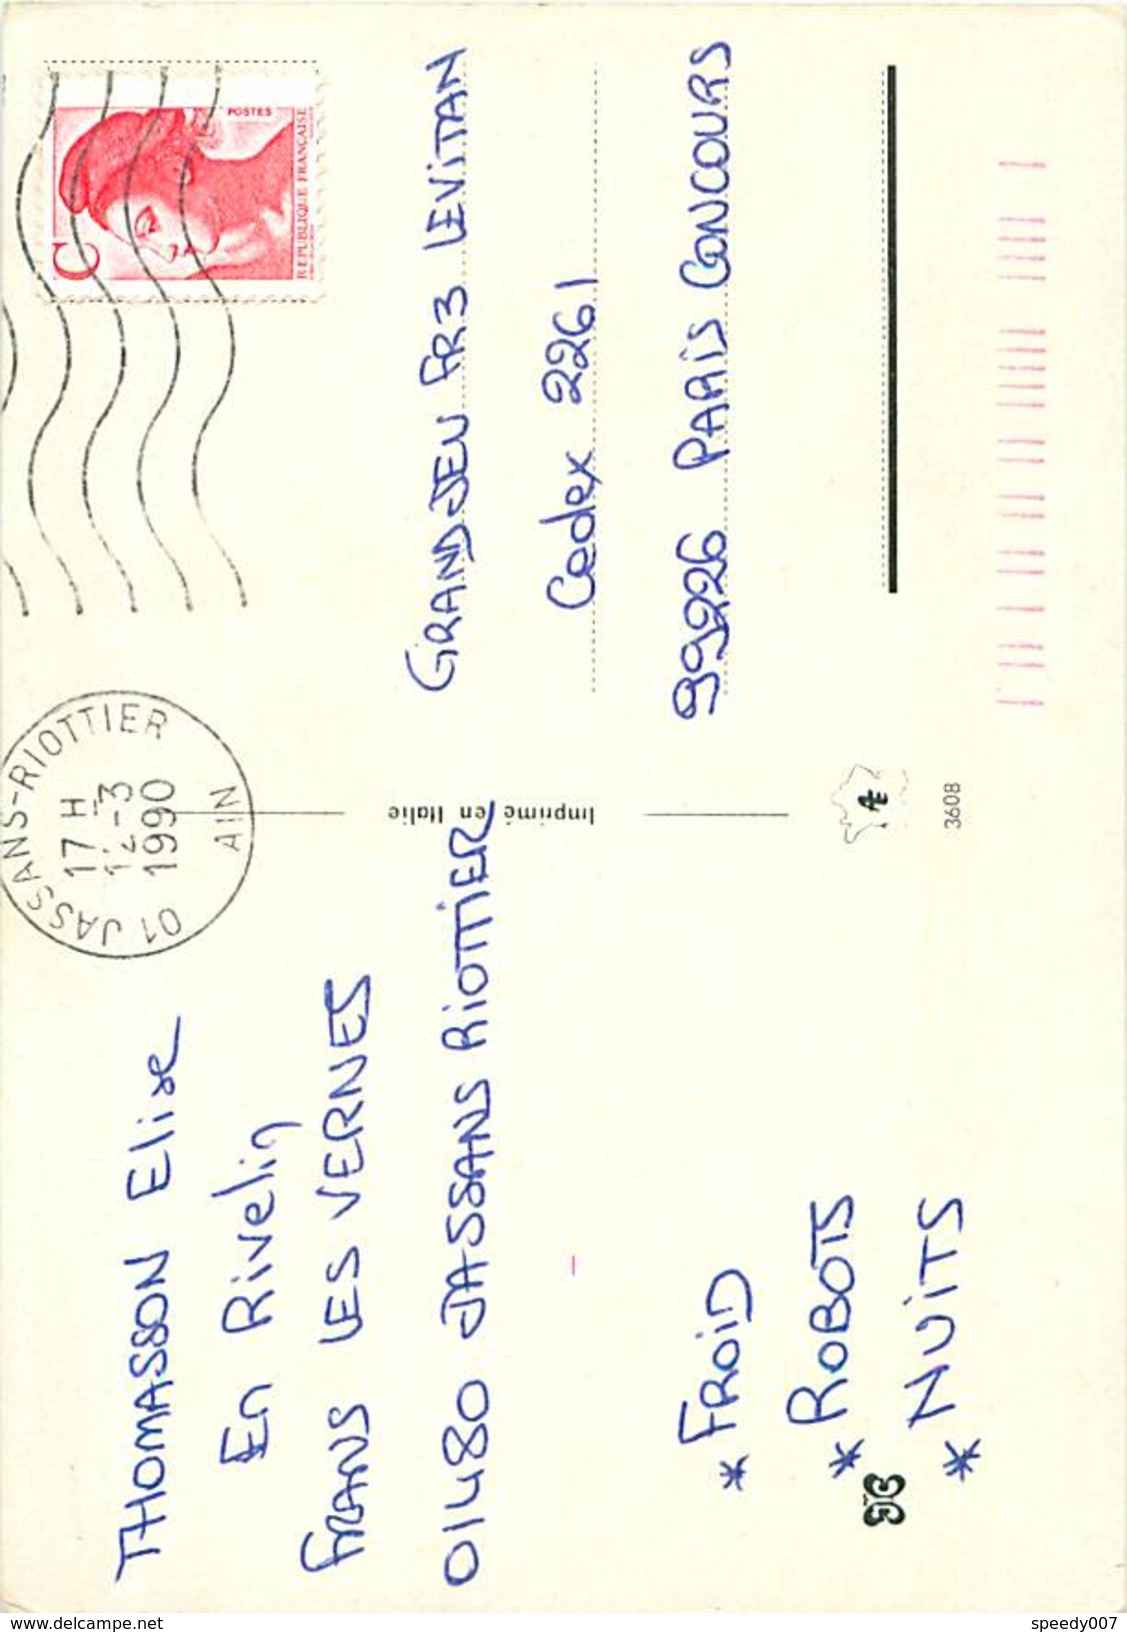 THOMASSON Elise
En Rivelin
FRANS LES VERNES
01480 JASSANS RIOTTIER
* FROID
* ROBOTS
* NUITS
01 JASSANS-RIOTTIER
17 H
12-3
1990
AIN
Imprimé en Italie
3608
C
POSTES
REPUBLIQUE FRANÇAISE
GRANDJEU FR3 LEVITAN
Cedex 2261
99226 PARIS CONCOURS
delcampe.net
speedy007